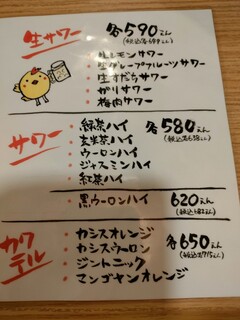 生サワー 各590えん
(税込各649えん)
・生レモンサワー
・生グレープフルーツサワー
・生すだちサワー
・ガリサワー
・梅肉サワー
サワー
・緑茶ハイ 各580えん
・玄米茶ハイ (税込各638えん)
・ウーロンハイ
・ジャスミンハイ
・紅茶ハイ
・黒ウーロンハイ 620えん
(税込682えん)
カクテル
・カシスオレンジ 各650えん
・カシスウーロン (税込各715えん)
・ジントニック
・マンゴヤンオレンジ